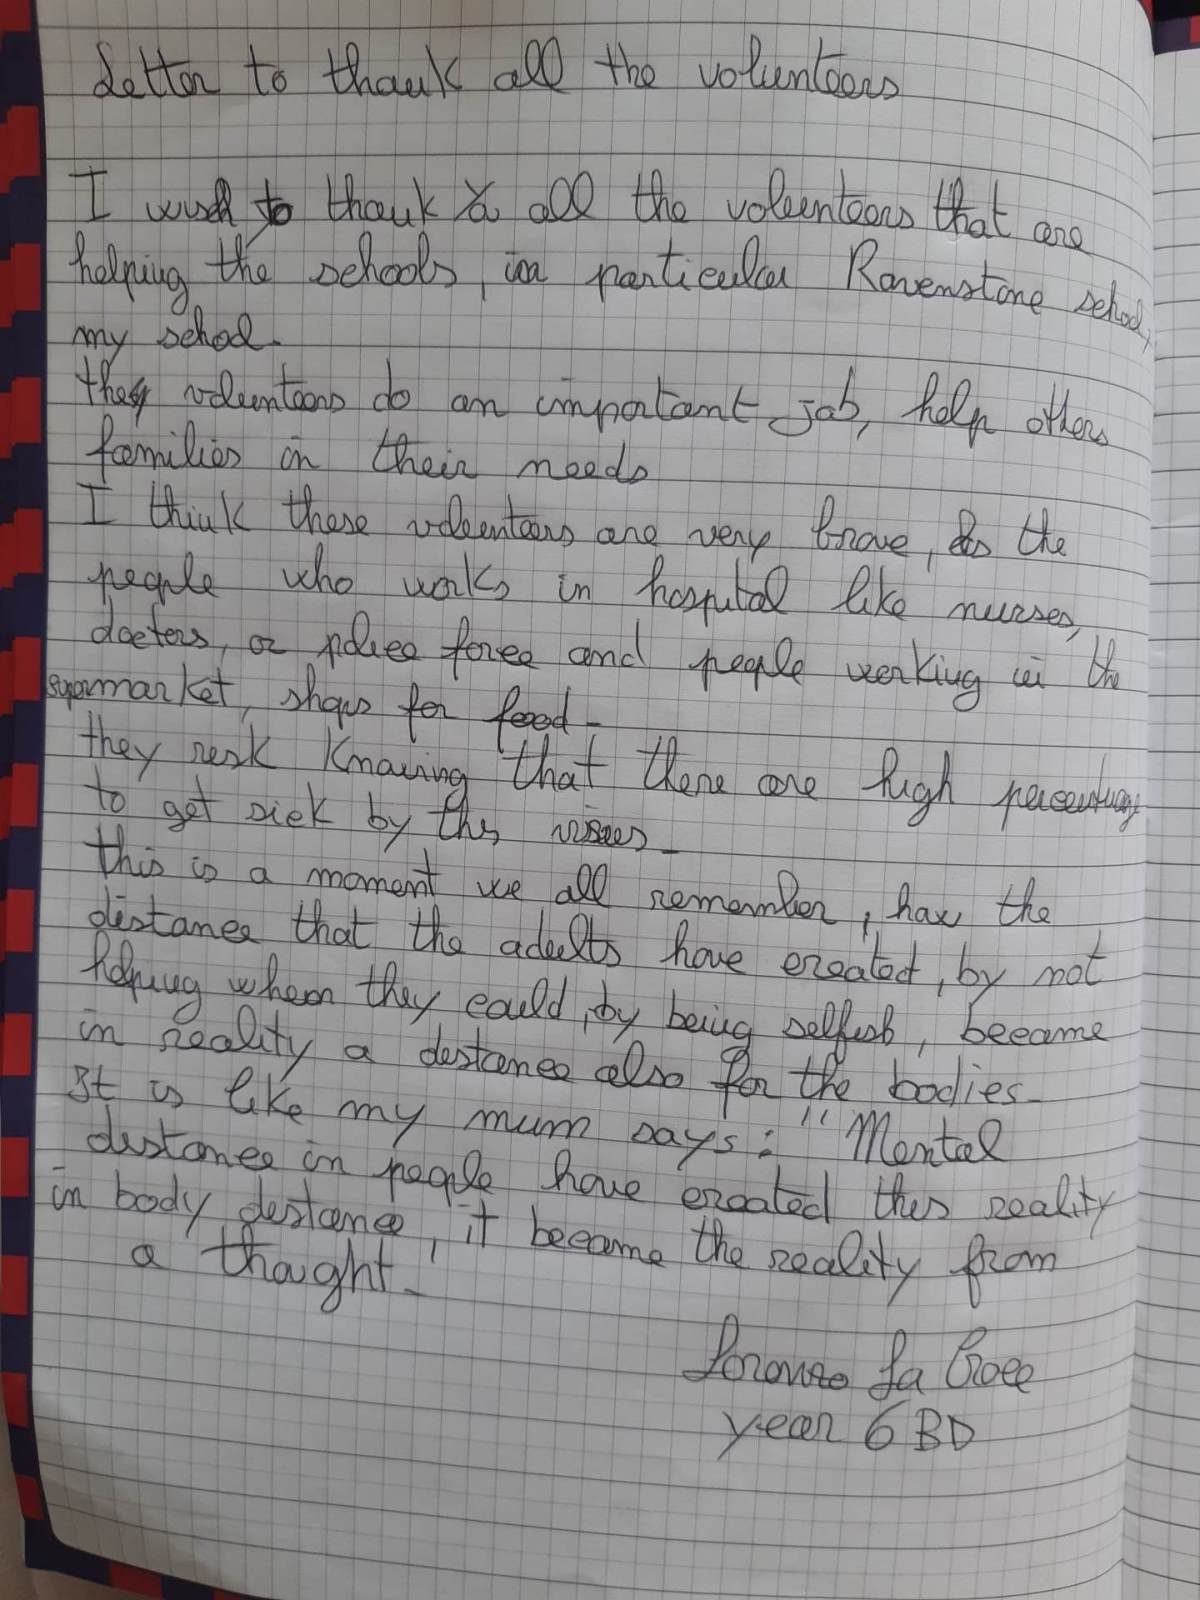 Letter to thank all the volunteers
I wish to thank all the volunteers that are
helping the schools, in particular Ravenstone school,
my school.
they volunteers do an important job, help others
families in their needs
I think these volunteers are very brave, as the
people who works in hospital like nurses,
docters, or police force and people working in the
supermarket, shops for food.
they resk knowing that there are high
to get sick by this
this is a moment we all remember, how the
distance that the adults have created, by not
helping when they could, by being selfish, became
in reality a destance also for the bodies.
It is like my mum says: "Mental
distance in people have created this reality
in body destance, it became the reality from
a thought.
Lorenzo La Croce
year 6 BD